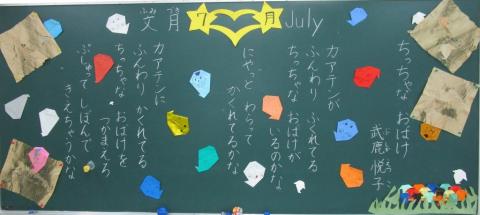 文月
ふみ づき
7 月
July
ちっちゃな おばけ
武鹿悦子
ぶ しか えつ こ
カアテンが
ふんわり ふくれてる
ちっちゃな おばけが
いるのかな
にやっと わらって
かくれてるかな
カアテンに
ふんわり かくれてる
ちっちゃな おばけを
つかまえろ
ぷしゅって しぼんで
きえちゃうかな